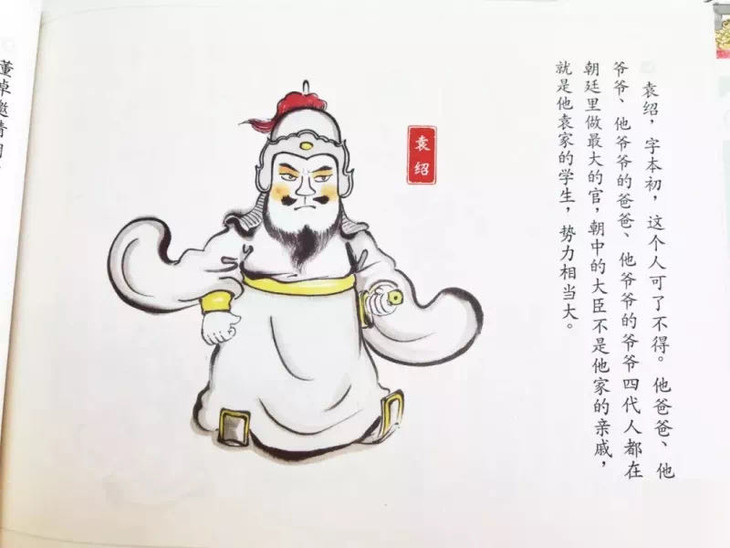 袁绍,字本初,这个人可了不得。他爸爸、他
爷爷、他爷爷的爸爸、他爷爷的爷爷四代人都在
朝廷里做最大的官,朝中的大臣不是他家的亲戚,
就是他袁家的学生,势力相当大。
袁绍
董卓邀请